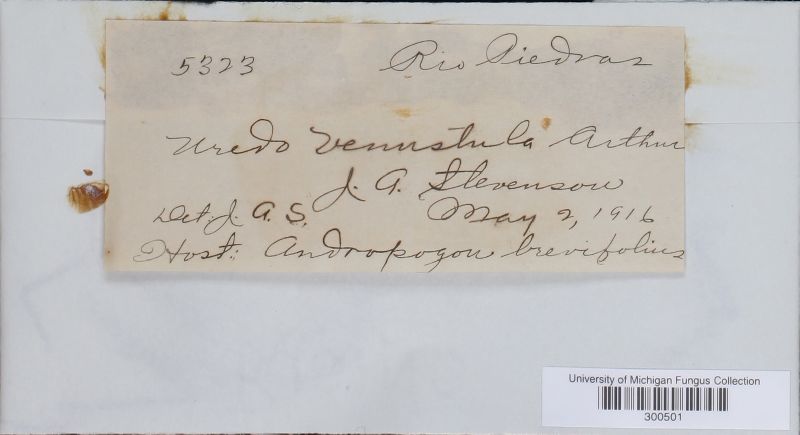 5323 Rio Piedras
Uredo venustula Arthur
J. A. Stevenson
Det. J. A. S. May 2, 1916
Host: Andropogon brevifolius
University of Michigan Fungus Collection
300501